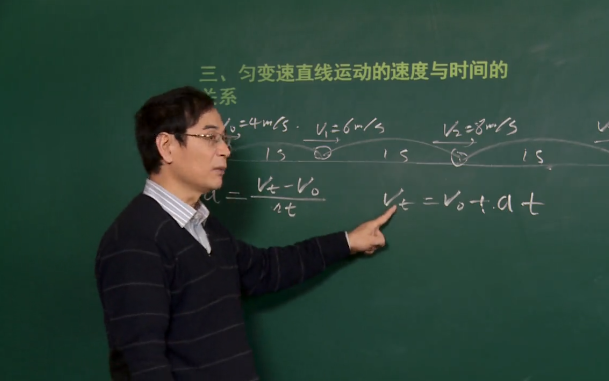 三、匀变速直线运动的速度与时间的
关系
V₀=4m/s. V₁=6m/s V₂=8m/s V
1s 1s 1s
a = (Vt-V₀)/Δt Vt = V₀+at